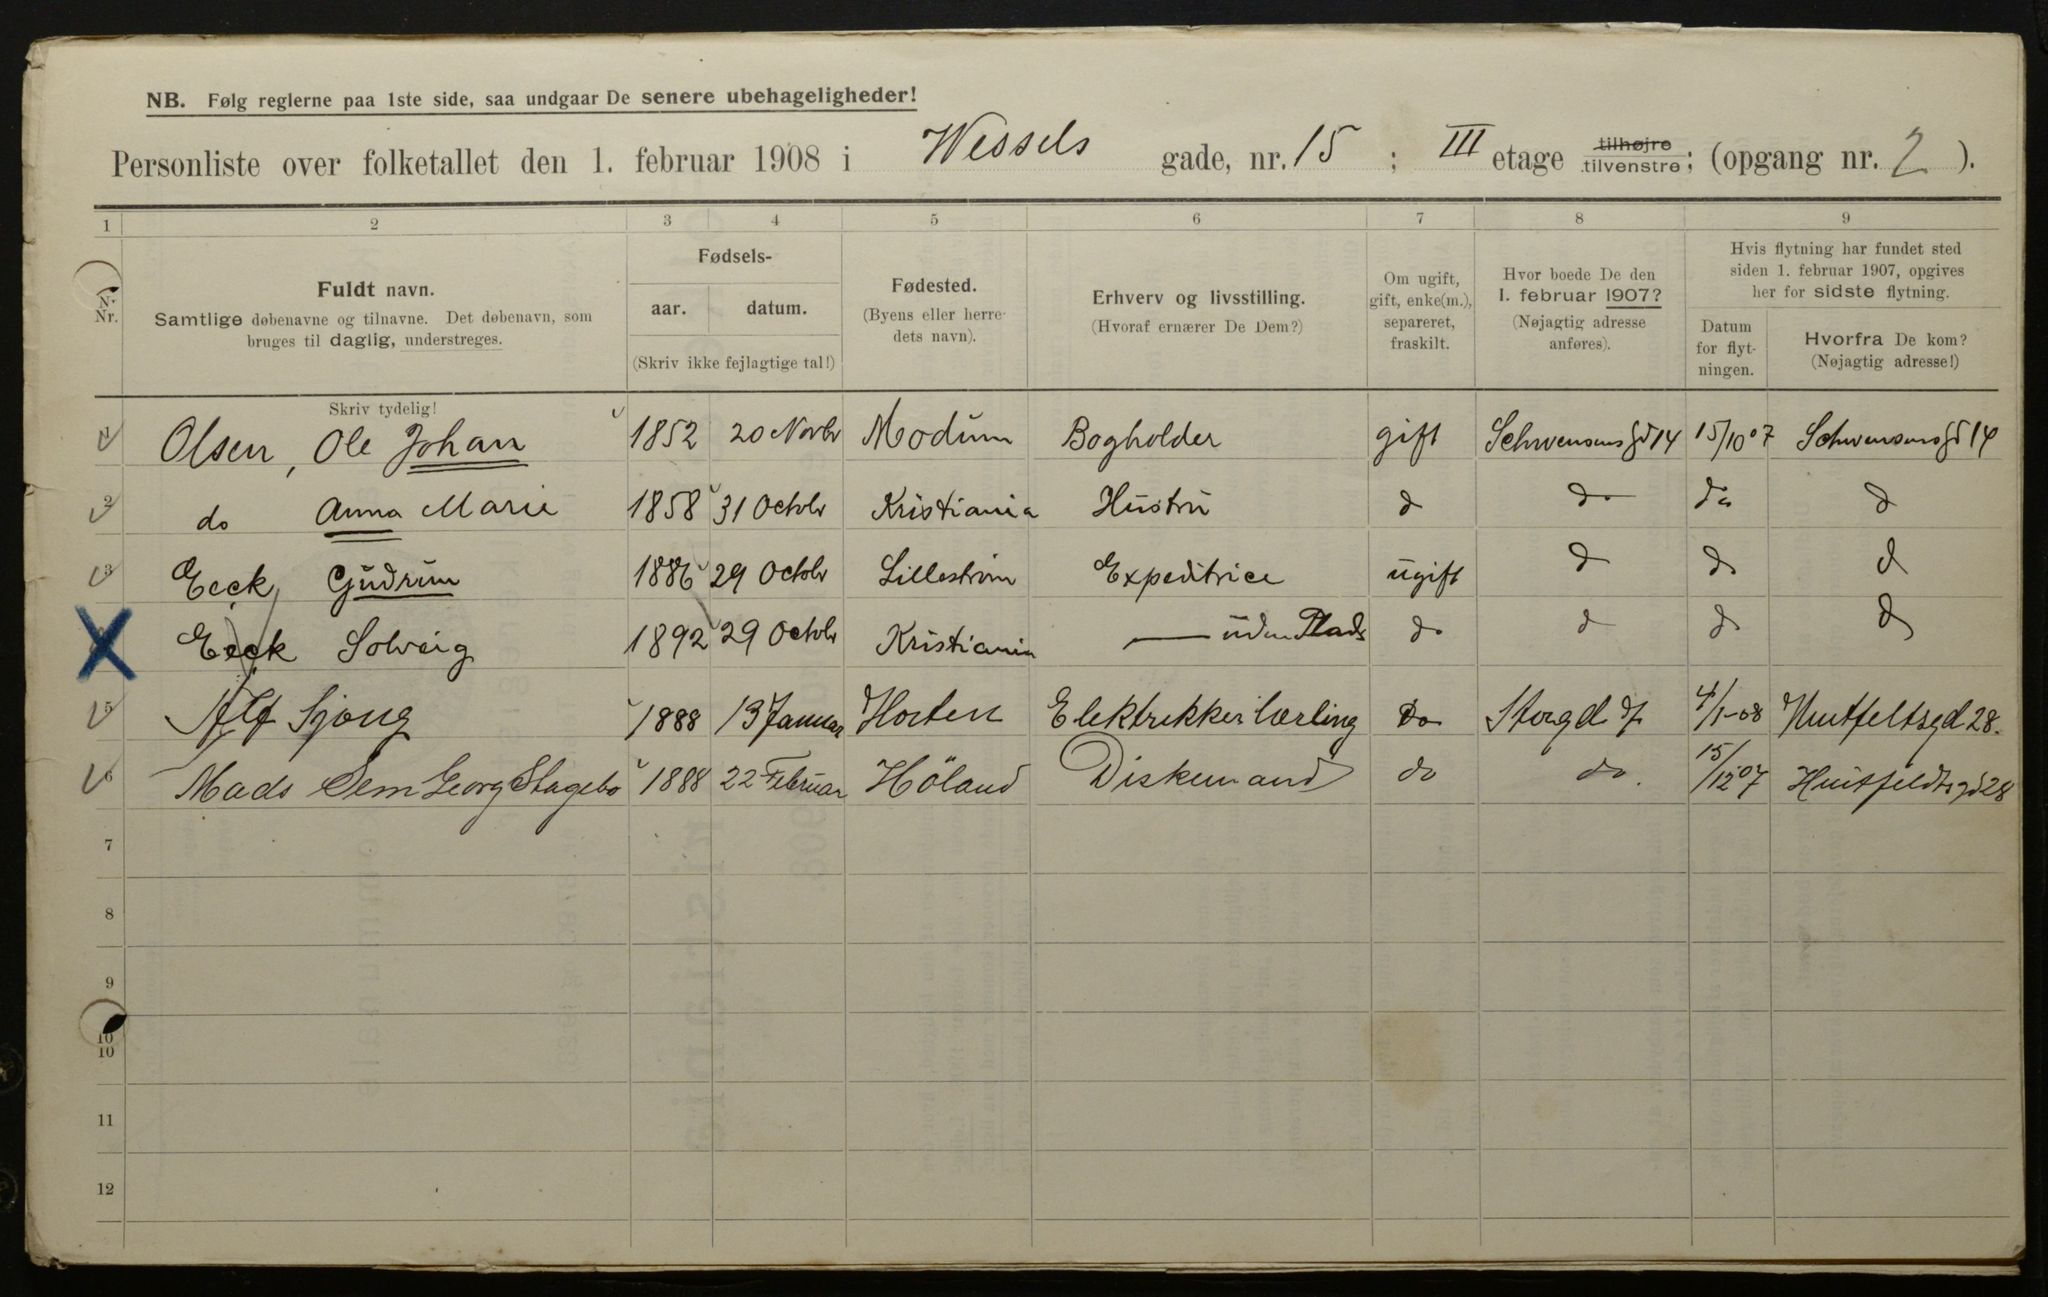 NB. Følg reglerne paa 1ste side, saa undgaar De senere ubehageligheder!
Personliste over folketallet den 1. februar 1908 i Wessels gade, nr. 15 ; III etage tilhøjre tilvenstre; (opgang nr. 2 ).
1 2 3 4 5 6 7 8 9
Nr. Nr.
Fuldt navn.
Samtlige døbenavne og tilnavne. Det døbenavn, som
bruges til daglig, understreges.
Fødsels-
aar. datum.
(Skriv ikke fejlagtige tal!)
Fødested.
(Byens eller herre-
dets navn).
Erhverv og livsstilling.
(Hvoraf ernærer De Dem?)
Om ugift,
gift, enke(m.),
separeret,
fraskilt.
Hvor boede De den
1. februar 1907?
(Nøjagtig adresse
anføres).
Hvis flytning har fundet sted
siden 1. februar 1907, opgives
her for sidste flytning.
Datum
for flyt-
ningen.
Hvorfra De kom?
(Nøjagtig adresse!)
Skriv tydelig!
1 Olsen, Ole Johan 1852 20 Novbr Modum Bogholder gift Schwensensgd 14 15/10 07 Schwensensgd 14
2 do Anna Marie 1858 31 Octobr Kristiania Hustru do do do do
3 Eeck, Gudrun 1886 29 Octobr Lillestrøm Expeditrice ugift do do do
Eeck Solveig 1892 29 Octobr Kristiania — uden Plads do do do do
5 Alf Sjong 1888 13 Januar Horten Elektrikkerlærling Do Storgd 7 4/1-08 Huitfeltsgd 28.
6 Mads Sem Georg Stagebo 1888 22 Februar Höland Diskemand do do. 15/12 07 Huitfeldtsgd 28
7
8
9
10
10
11
12